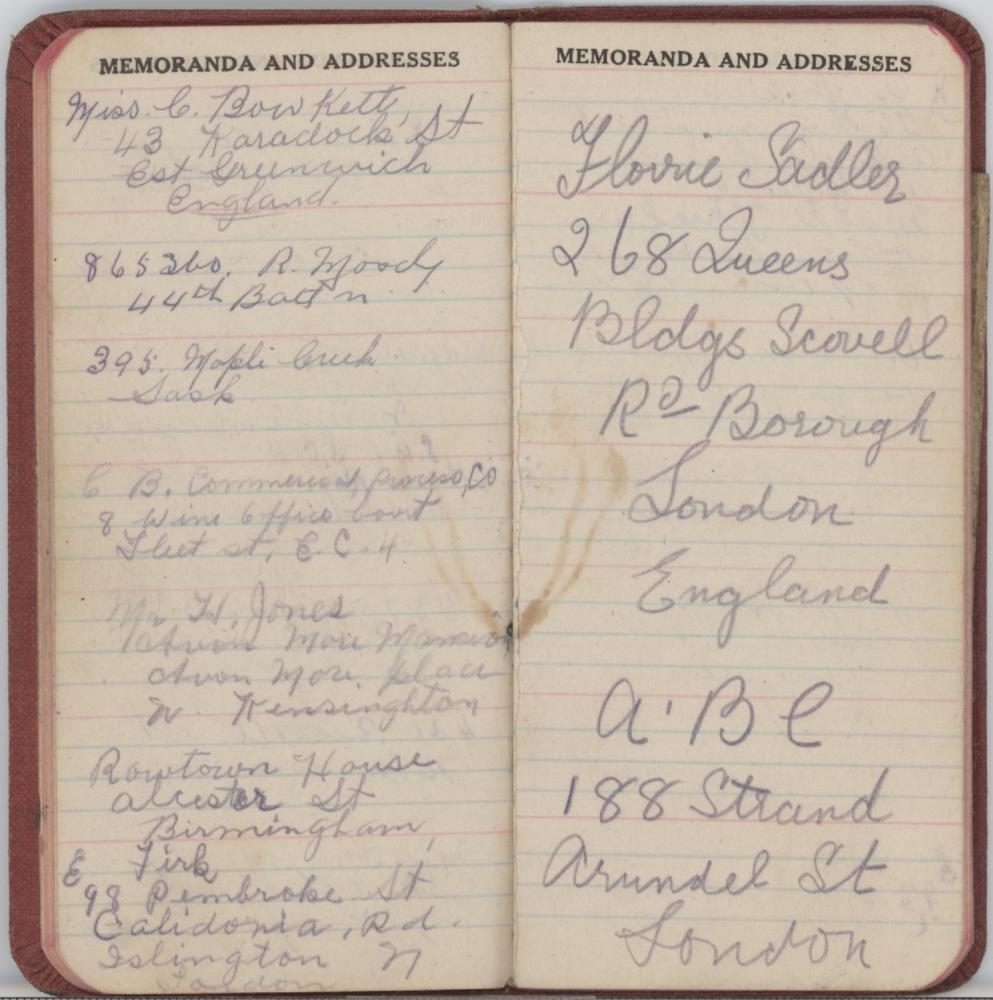 MEMORANDA AND ADDRESSES
Miss. C. Bow Kett,
43 Karadock St
Est Greenwich
England.
865360. R. Moody
44th Batt n
395. Mapli Creek
Sask
C B. Commercial, Process, Co
8 Wine Office Court
Fleet st, E.C.4
Mr H. Jones
Avon More Mansion
Avon More place
W. Kensinghton
Rowtown House
Alcester St
Birmingham,
E Firk
98 Pembroke St
Calidonia, Rd.
Islington N
London
MEMORANDA AND ADDRESSES
Florrie Sadler
268 Queens
Bldgs Scovell
Rd Borough
London
England
A. B C
188 Strand
Arundel St
London